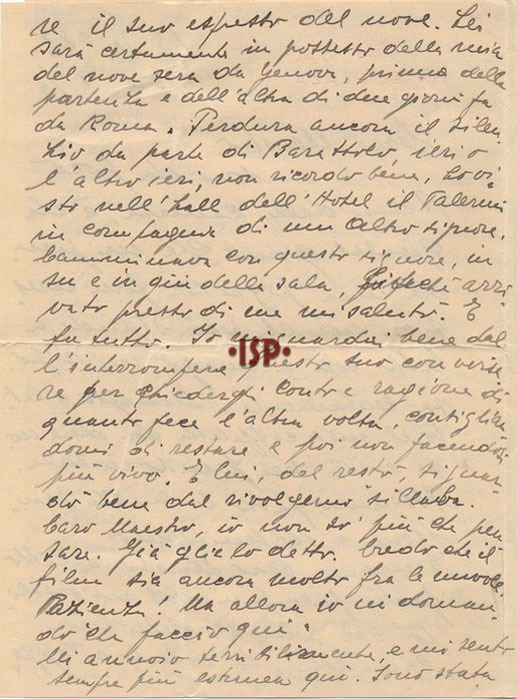 re il suo espresso del nove. Lei
sarà certamente in possesso della mia
del nove sera da Genova, prima della
partenza e dell'altra di due giorni fa
da Roma. Perdura ancora il silen
zio da parte di Barattolo, ieri o
l'altro ieri, non ricordo bene, ho vi-
sto nell'hall dell'Hotel il Falconi
in compagnia di un altro signore.
Camminava con questo signore, in
su e in giù della sala, arri
vato presto di me mi salutò. E
fu tutto. Io mi guardai bene dal
·ISP·
l'interrompere questo suo conversa
re per chiedergli conto e ragione di
quanto fece l'altra volta, consiglian
domi di restare e poi non facendosi
più vivo. E lui, del resto, si guar
dò bene dal rivolgermi sillaba.
Caro Maestro, io non so più che pen
sare. Già glie lo detto. Credo che il
film sia ancora molto fra le nuvole.
Pazienza! Ma allora io mi doman
do che faccio qui.
Mi annoio terribilmente, e mi sento
sempre più estranea qui. Sono stata